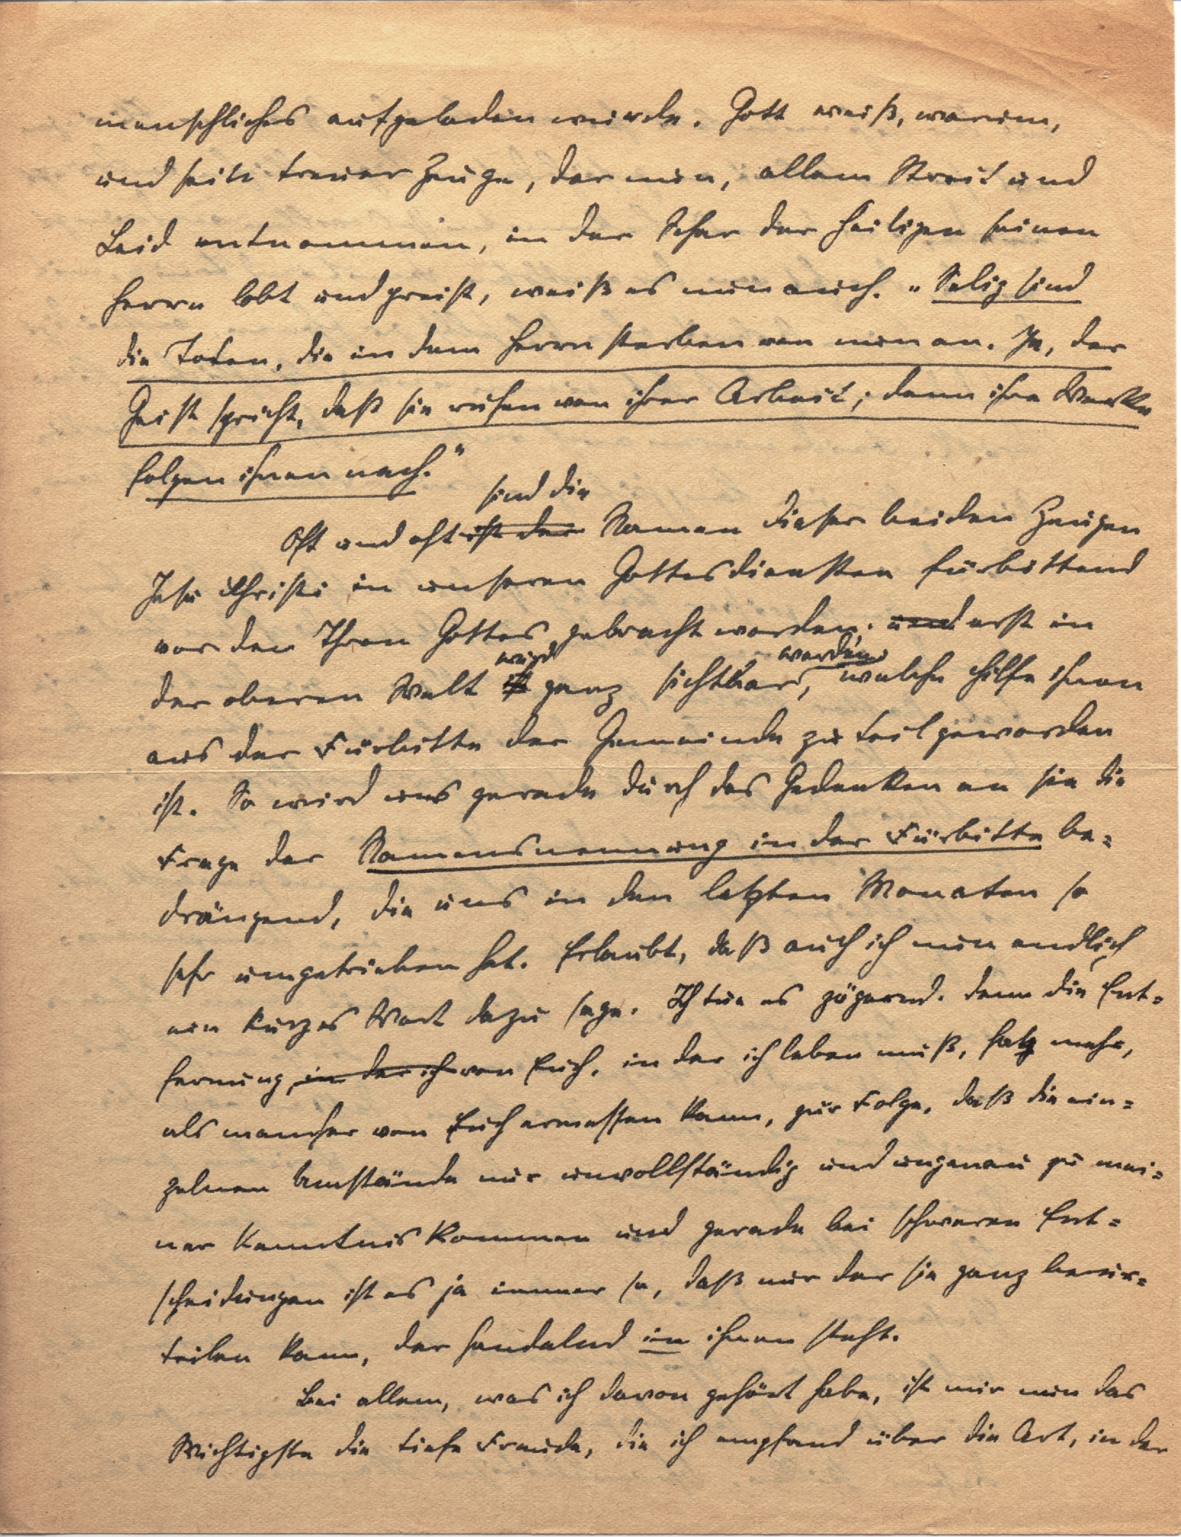 menschliches aufgeladen wurde. Gott weiß, warum,
und sein treuer Zeuge, der nun, allem Streit und
Leid entnommen, in der Schar der Heiligen seinen
Herrn lobt und preist, weiß es nun auch. „Selig sind
die Toten, die in dem Herrn sterben von nun an. Ja, der
Geist spricht, daß sie ruhen von ihrer Arbeit; denn ihre Werke
folgen ihnen nach."
sind die
Oft und oft ist der Namen dieser beiden Zeugen
Jesu Christi in unseren Gottesdiensten fürbittend
vor den Thron Gottes gebracht worden; und erst in
wird werden
der oberen Welt ist ganz sichtbar, welche Hilfe ihnen
aus der Fürbitte der Gemeinde zu teil geworden
ist. So wird uns gerade durch das Gedenken an sie die
Frage der Namensnennung in der Fürbitte be=
drängend, die uns in den letzten Monaten so
sehr umgetrieben hat. Erlaubt, daß auch ich nun endlich
ein kurzes Wort dazu sage. Ich tue es zögernd. denn die Ent=
fernung, in der ich von Euch, in der ich leben muß, hat mehr,
als mancher von Euch ermessen kann, zur Folge, daß die ein=
zelnen Umstände nur unvollständig und ungenau zu mei=
ner Kenntnis kommen und gerade bei schweren Ent=
scheidungen ist es ja immer so, daß nur der sie ganz beur=
teilen kann, der handelnd in ihnen steht.
Bei allem, was ich davon gehört habe, ist mir nun das
Wichtigste die tiefe Freude, die ich empfand über die Art, in der